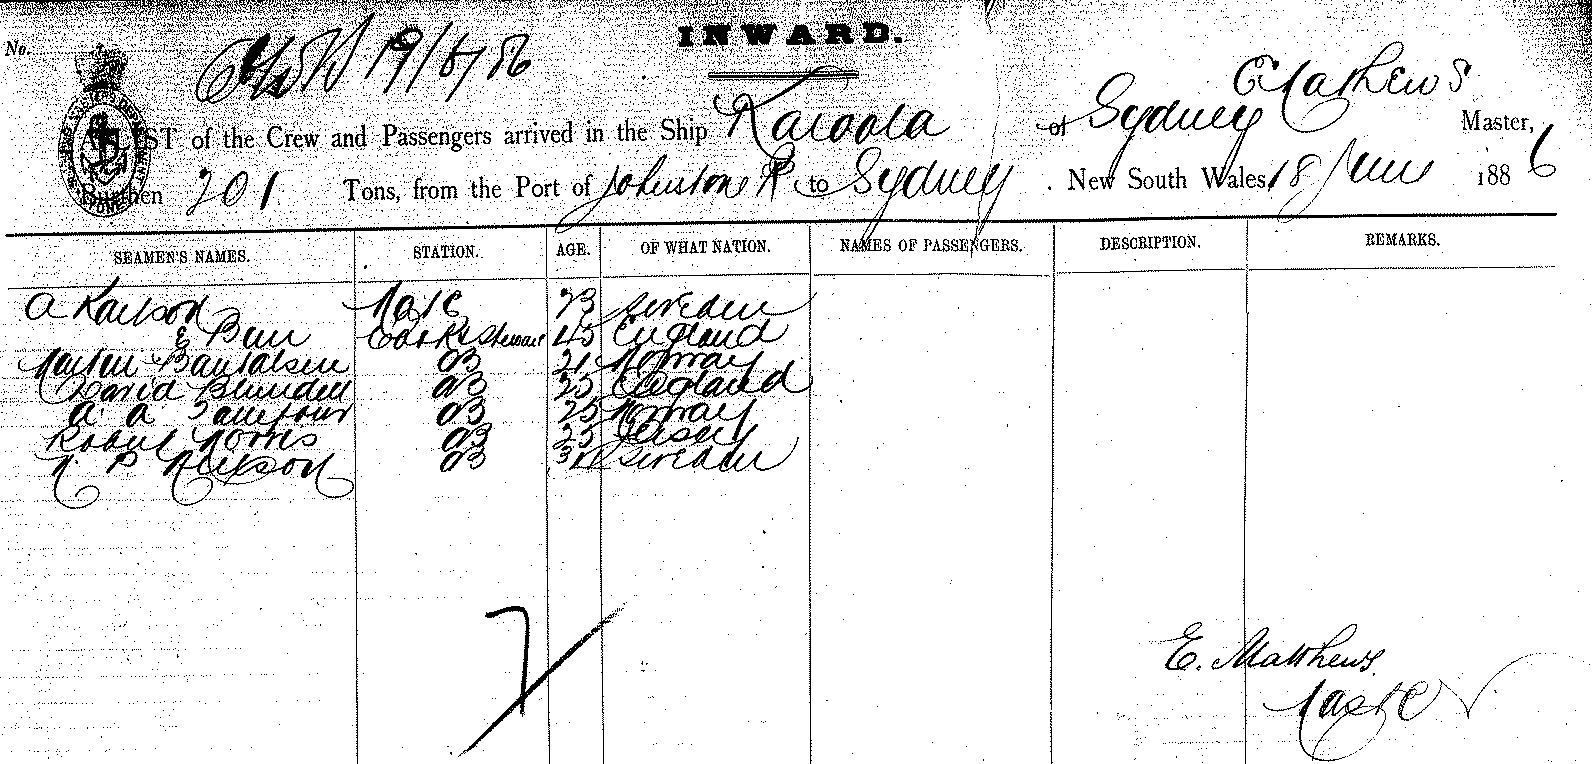 INWARD.
No.
19/6/86
E Mathews
A LIST of the Crew and Passengers arrived in the Ship Kaloola of Sydney Master,
Burthen 201 Tons, from the Port of Johnstone R to Sydney . New South Wales, 18 June 1886
SEAMEN'S NAMES. STATION. AGE. OF WHAT NATION. NAMES OF PASSENGERS. DESCRIPTION. REMARKS.
A Karlson Mate 23 Sweden
E Barr Cook & Steward 45 England
AB 21 Norway
David Blundell AB 25 England
A. A. AB 25 Norway
Robert Norris AB 25 Jersey
N. P. Neilson AB Sweden
7
E. Matthews.
Master